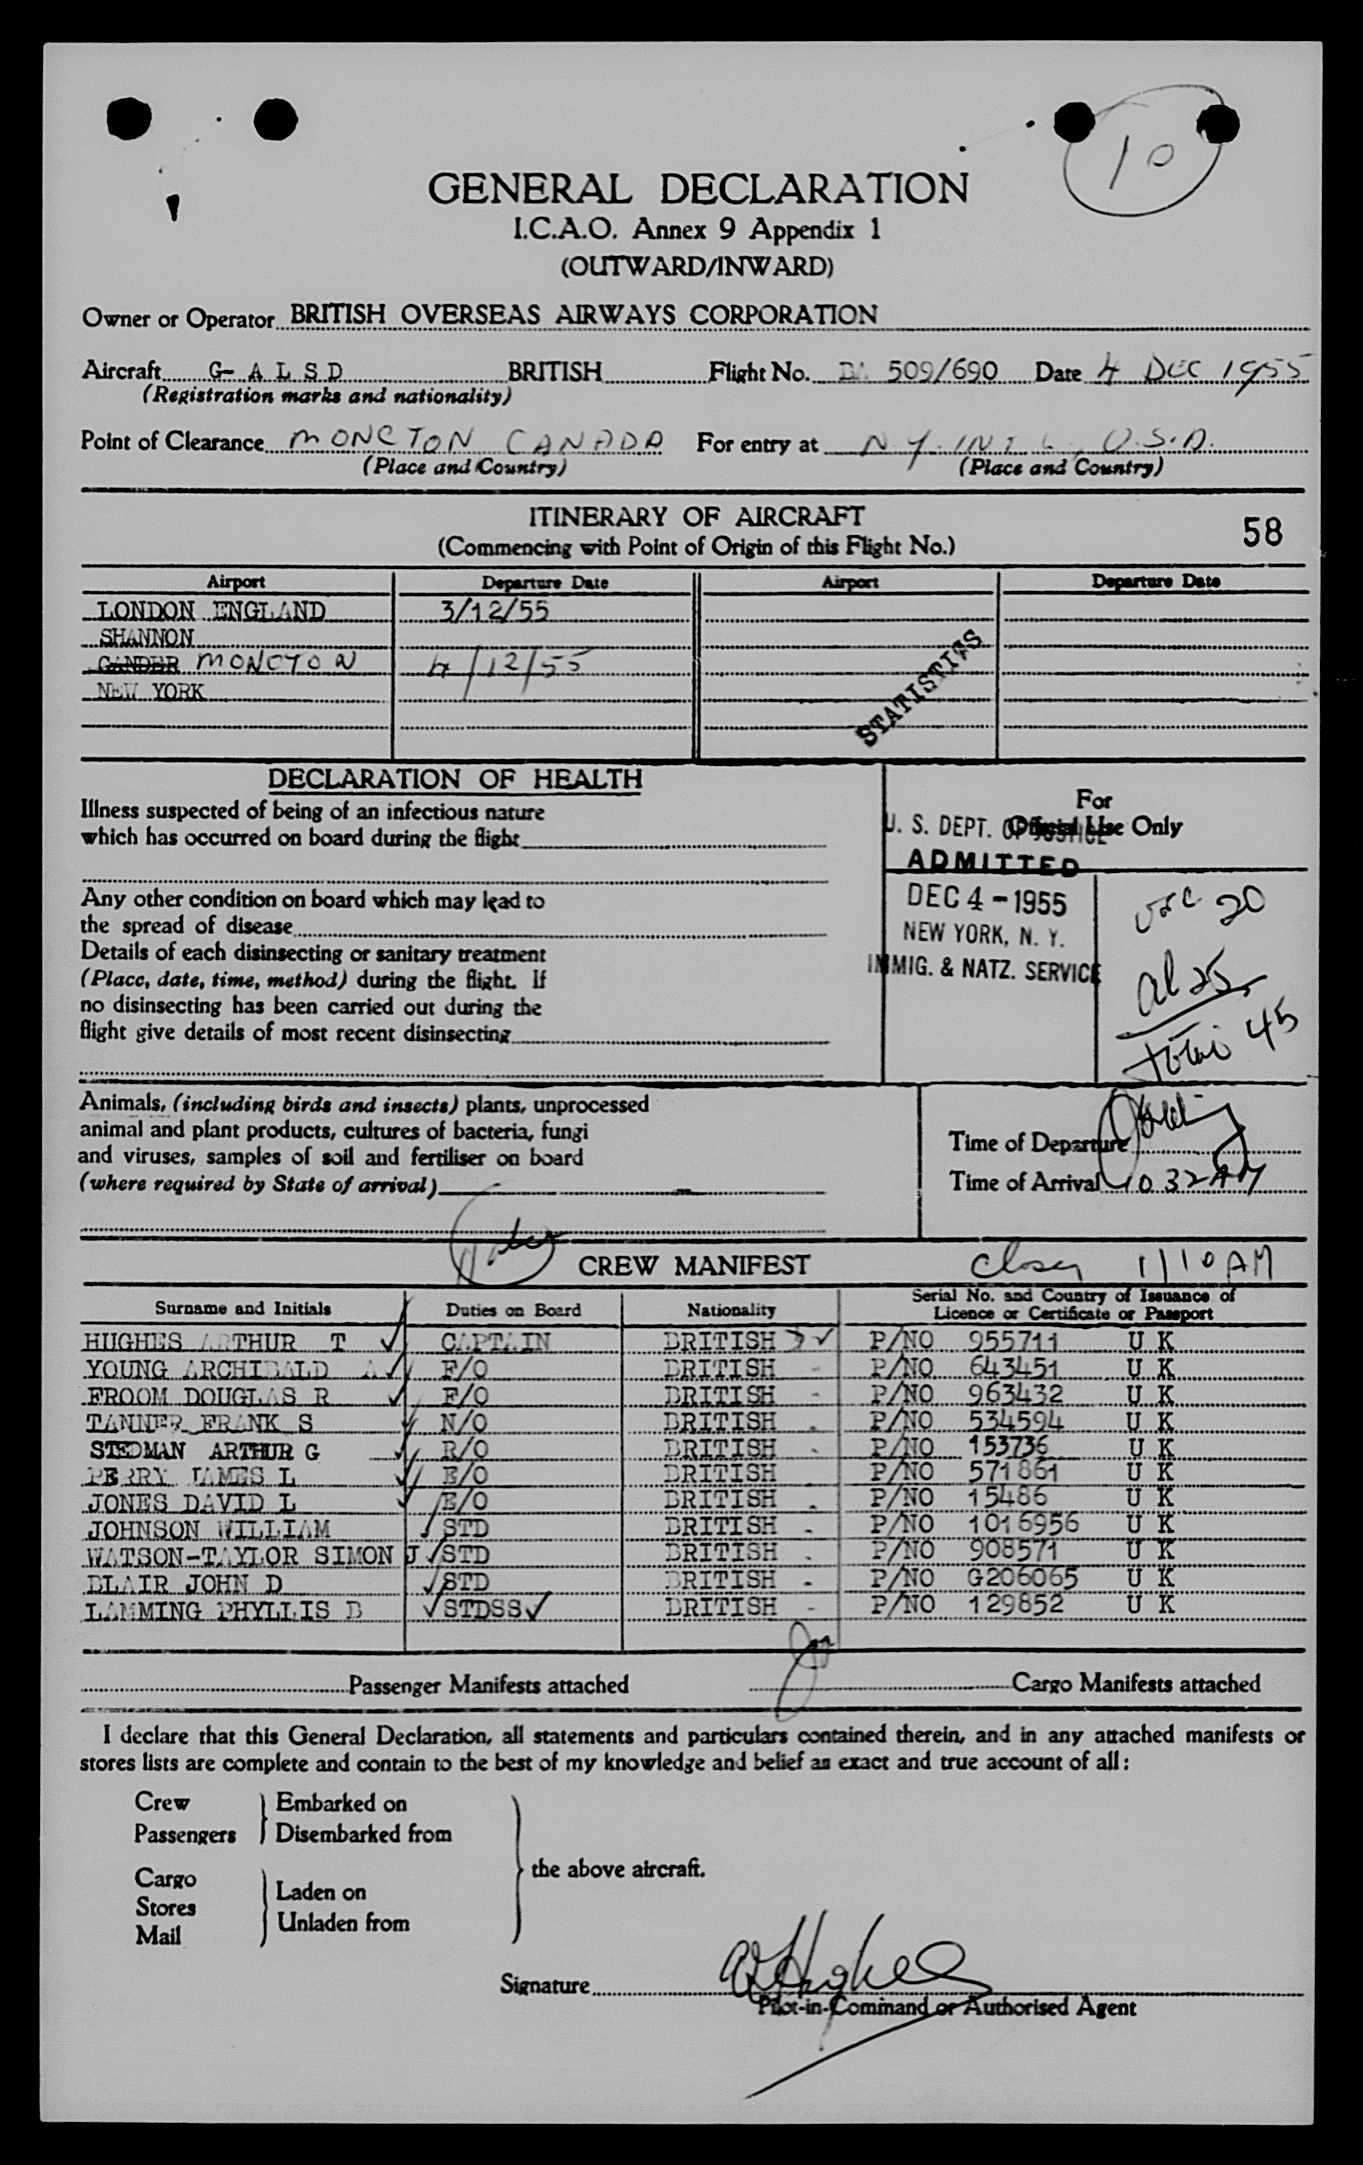 10
GENERAL DECLARATION
I.C.A.O. Annex 9 Appendix 1
(OUTWARD/INWARD)
Owner or Operator BRITISH OVERSEAS AIRWAYS CORPORATION
Aircraft G- A L S D BRITISH Flight No. BA 509/690 Date 4 DEC 1955
(Registration marks and nationality)
Point of Clearance MONCTON CANADA For entry at N.Y. INTL, U.S.A.
(Place and Country) (Place and Country)
ITINERARY OF AIRCRAFT
(Commencing with Point of Origin of this Flight No.)
58
Airport Departure Date Airport Departure Date
LONDON ENGLAND 3/12/55
SHANNON
GANDER MONCTON 4/12/55
NEW YORK
STATISTICS
DECLARATION OF HEALTH
Illness suspected of being of an infectious nature
which has occurred on board during the flight
Any other condition on board which may lead to
the spread of disease
Details of each disinsecting or sanitary treatment
(Place, date, time, method) during the flight. If
no disinsecting has been carried out during the
flight give details of most recent disinsecting
For
Official Use Only
U. S. DEPT. OF JUSTICE
ADMITTED
DEC 4 - 1955
NEW YORK, N. Y.
IMMIG. & NATZ. SERVICE
usc 20
al 25
total 45
Animals, (including birds and insects) plants, unprocessed
animal and plant products, cultures of bacteria, fungi
and viruses, samples of soil and fertiliser on board
(where required by State of arrival)
Time of Departure
Time of Arrival 10 32 AM
CREW MANIFEST
Close 11 10 AM
Surname and Initials Duties on Board Nationality Serial No. and Country of Issuance of
Licence or Certificate or Passport
HUGHES ARTHUR T CAPTAIN BRITISH P/NO 955711 U K
YOUNG ARCHIBALD A F/O BRITISH P/NO 643451 U K
FROOM DOUGLAS R F/O BRITISH P/NO 963432 U K
TANNER FRANK S N/O BRITISH P/NO 534594 U K
STEDMAN ARTHUR G R/O BRITISH P/NO 153736 U K
PERRY JAMES L E/O BRITISH P/NO 571861 U K
JONES DAVID L E/O BRITISH P/NO 15486 U K
JOHNSON WILLIAM STD BRITISH P/NO 1016956 U K
WATSON-TAYLOR SIMON J STD BRITISH P/NO 908571 U K
BLAIR JOHN D STD BRITISH P/NO G206065 U K
LAMMING PHYLLIS B STDSS BRITISH P/NO 129852 U K
Passenger Manifests attached Cargo Manifests attached
I declare that this General Declaration, all statements and particulars contained therein, and in any attached manifests or
stores lists are complete and contain to the best of my knowledge and belief an exact and true account of all:
Crew Embarked on
Passengers Disembarked from
the above aircraft.
Cargo Laden on
Stores
Mail Unladen from
Signature A T Hughes
Pilot-in-Command or Authorised Agent